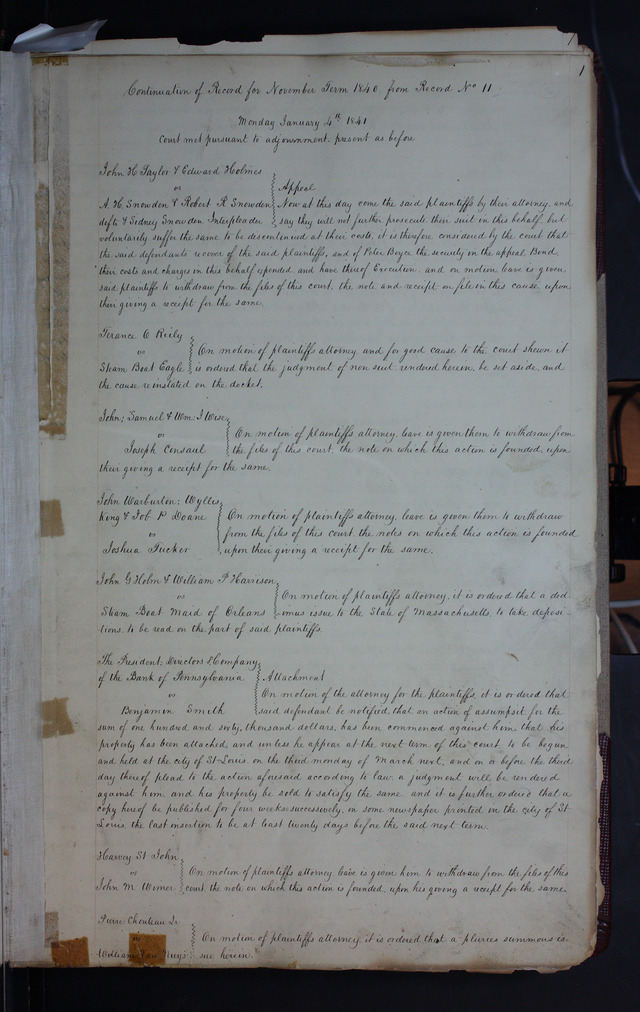 1
1
Continuation of Record for November Term 1840 from Record No 11
Monday January 4th 1841
Court met pursuant to adjournment. present as before
John H Taylor & Edward Holmes
vs
Appeal
A. H. Snowden & Robert R Snowden Now at this day come the said plaintiffs by their attorney, and
defts & Sidney Snowden Interpleader say they will not further prosecute their suit in this behalf, but
voluntarily suffer the same to be discontinued at their costs, it is therefore considered by the court that
the said defendants recover of the said plaintiffs, and of Peter Boyce the security in the appeal Bond,
their costs and charges in this behalf expended and have thereof Execution. and on motion leave is given
said plaintiffs to withdraw from the files of this court, the note and receipt on file in this cause, upon
their giving a receipt for the same.
Terance O Reily
vs
On motion of plaintiffs attorney and for good cause to the court shewn it
Steam Boat Eagle is ordered that the judgment of non suit rendered herein, be set aside, and
the cause reinstated on the docket.
John, Samuel & Wm: I Wise
vs
On motion of plaintiffs attorney, leave is given them to withdraw from
Joseph Consaul the files of this court, the note on which this action is founded, upon
their giving a receipt for the same.
John Warburton: Wyllis
King & Job P Doane On motion of plaintiffs attorney, leave is given them to withdraw
vs from the files of this court the notes on which this action is founded
Joshua Tucker upon their giving a receipt for the same.
John G Holm & William P Harrison
vs
On motion of plaintiffs attorney, it is ordered that a ded
Steam Boat Maid of Orleans imus issue to the State of Massachusetts, to take deposi
tions, to be read on the part of said plaintiffs.
The President, Directors & Company
of the Bank of Pennsylvania Attachment
vs On motion of the attorney for the plaintiffs, it is ordered that
Benjamin Smith said defendant be notified, that an action of assumpsit for the
sum of one hundred and sixty, thousand dollars, has been commenced against him that his
property has been attached, and unless he appear at the next term of this court, to be begun
and held at the city of St Louis, on the third monday of March next, and on or before the third
day thereof plead to the action aforesaid according to law, a judgment will be rendered
against him, and his property be sold to satisfy the same and it is further ordered that a
copy hereof be published for four weeks successively, in some newspaper printed in the city of St
Louis, the last insertion to be at least twenty days before the said next term.
Harvey St John
vs On motion of plaintiffs attorney leave is given him to withdraw from the files of this
John M Wimer court, the note on which this action is founded, upon his giving a receipt for the same.
Pierre Chouteau Jr
On motion of plaintiffs attorney, it is ordered that a pluries summons is
William sue herein.